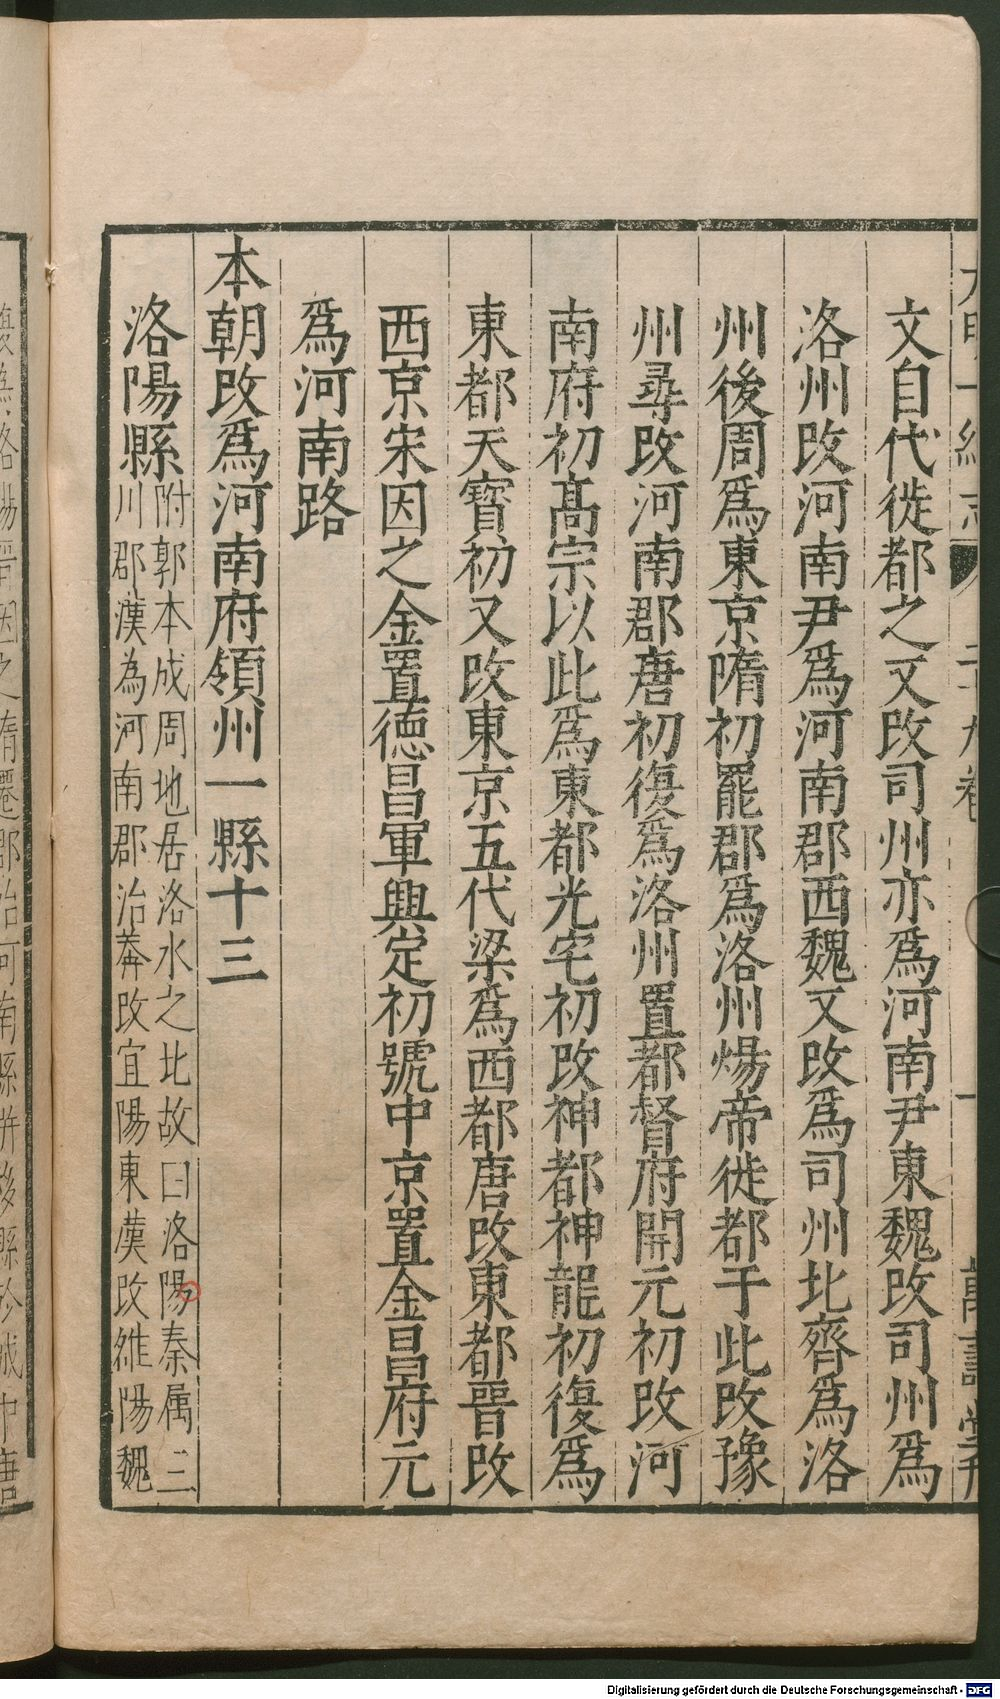 大明一統志 二十九卷 一 萬壽堂刊
文自代徙都之又改司州亦爲河南尹東魏改司州爲
洛州改河南尹爲河南郡西魏又改爲司州北齊爲洛
州後周爲東京隋初罷郡爲洛州煬帝徙都于此改豫
州尋改河南郡唐初復爲洛州置都督府開元初改河
南府初髙宗以此爲東都光宅初改神都神龍初復爲
東都天寳初又改東京五代梁爲西都唐改東都晉改
西京宋因之金置德昌軍興定初號中京置金昌府元
爲河南路
本朝改爲河南府領州一縣十三
洛陽縣附郭本成周地居洛水之北故曰洛陽秦属三
川郡漢為河南郡治莽改宜陽東漢改雒陽魏
復為洛陽晉因之隋遷郡治河南縣併緱縣 唐
Digitalisierung gefördert durch die Deutsche Forschungsgemeinschaft - DFG